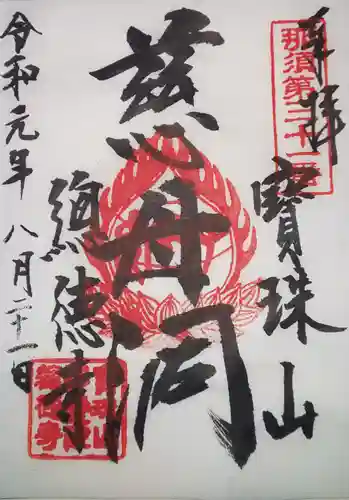 奉拝
那須第三十二番
寶珠山
慈母閣
總徳寺
令和元年八月二十一日